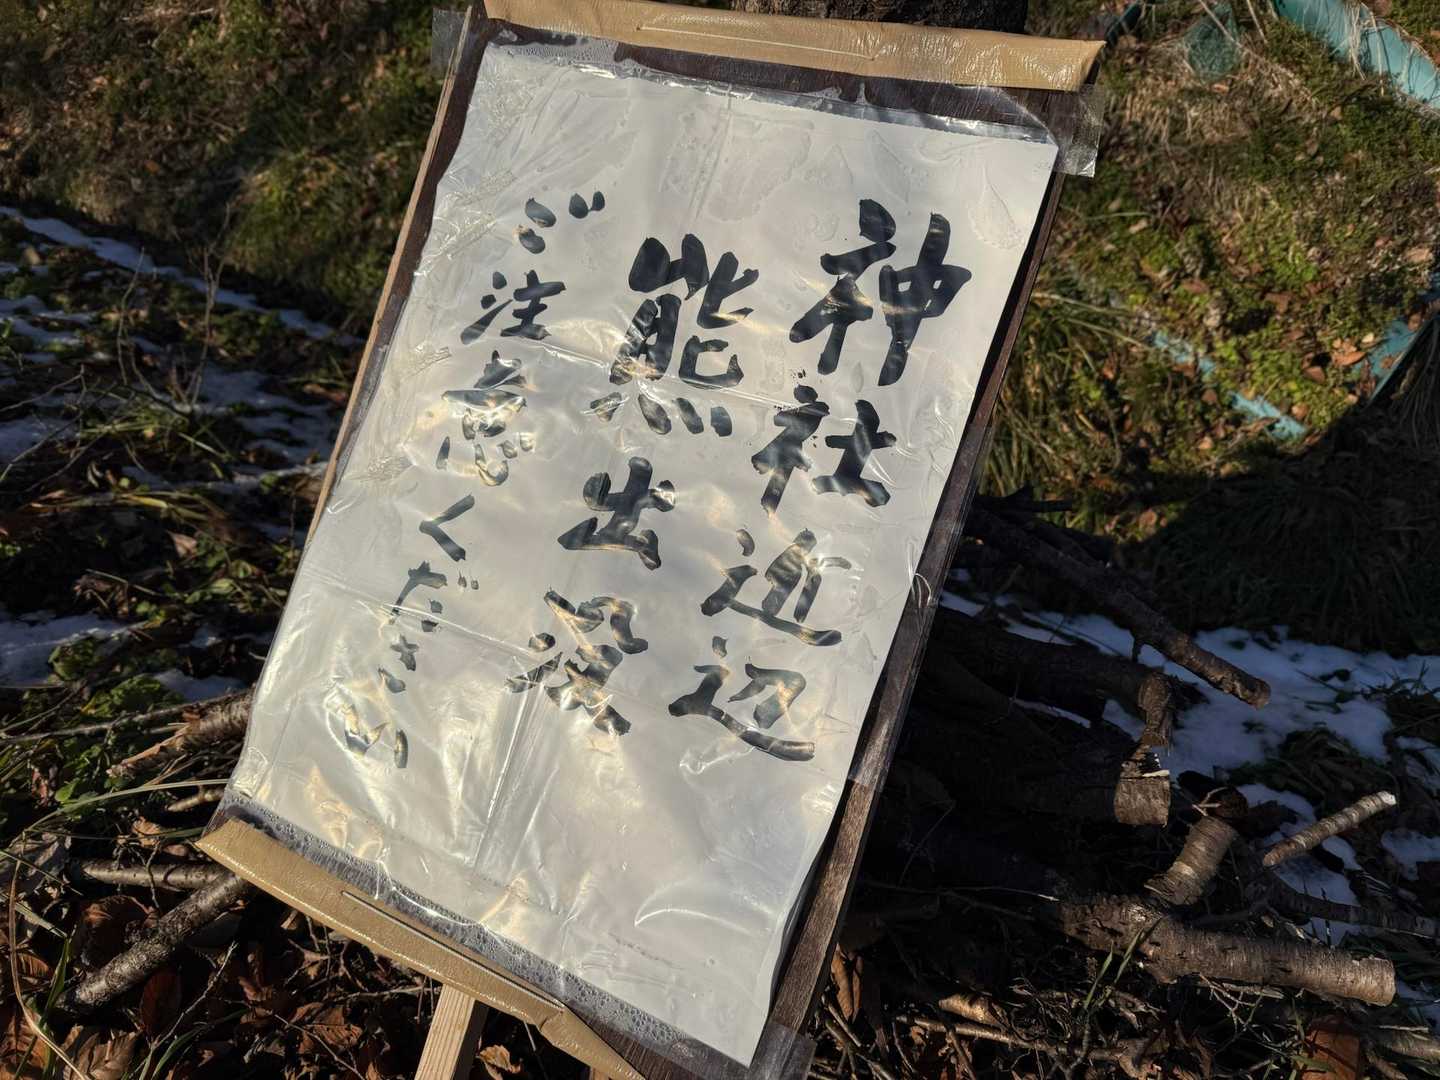 神社近辺
熊出没
ご注意ください